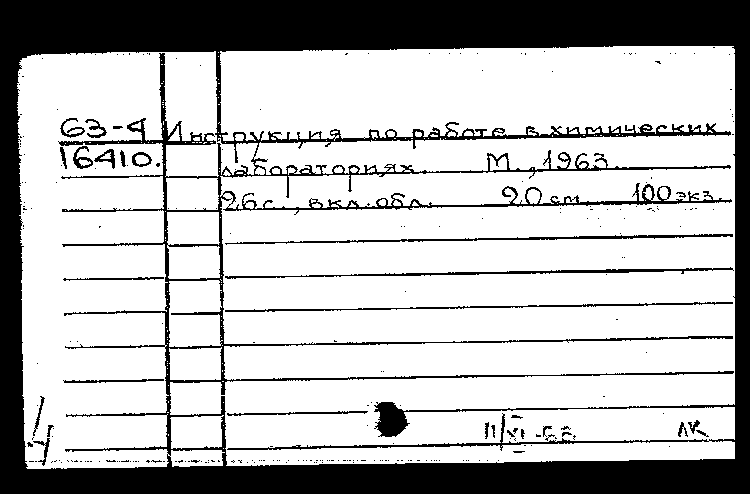 63-4 Инструкция по работе в химических
16410. лабораториях. М., 1963.
26с., вкл. обл. 20 см. 100 экз.
ЛК